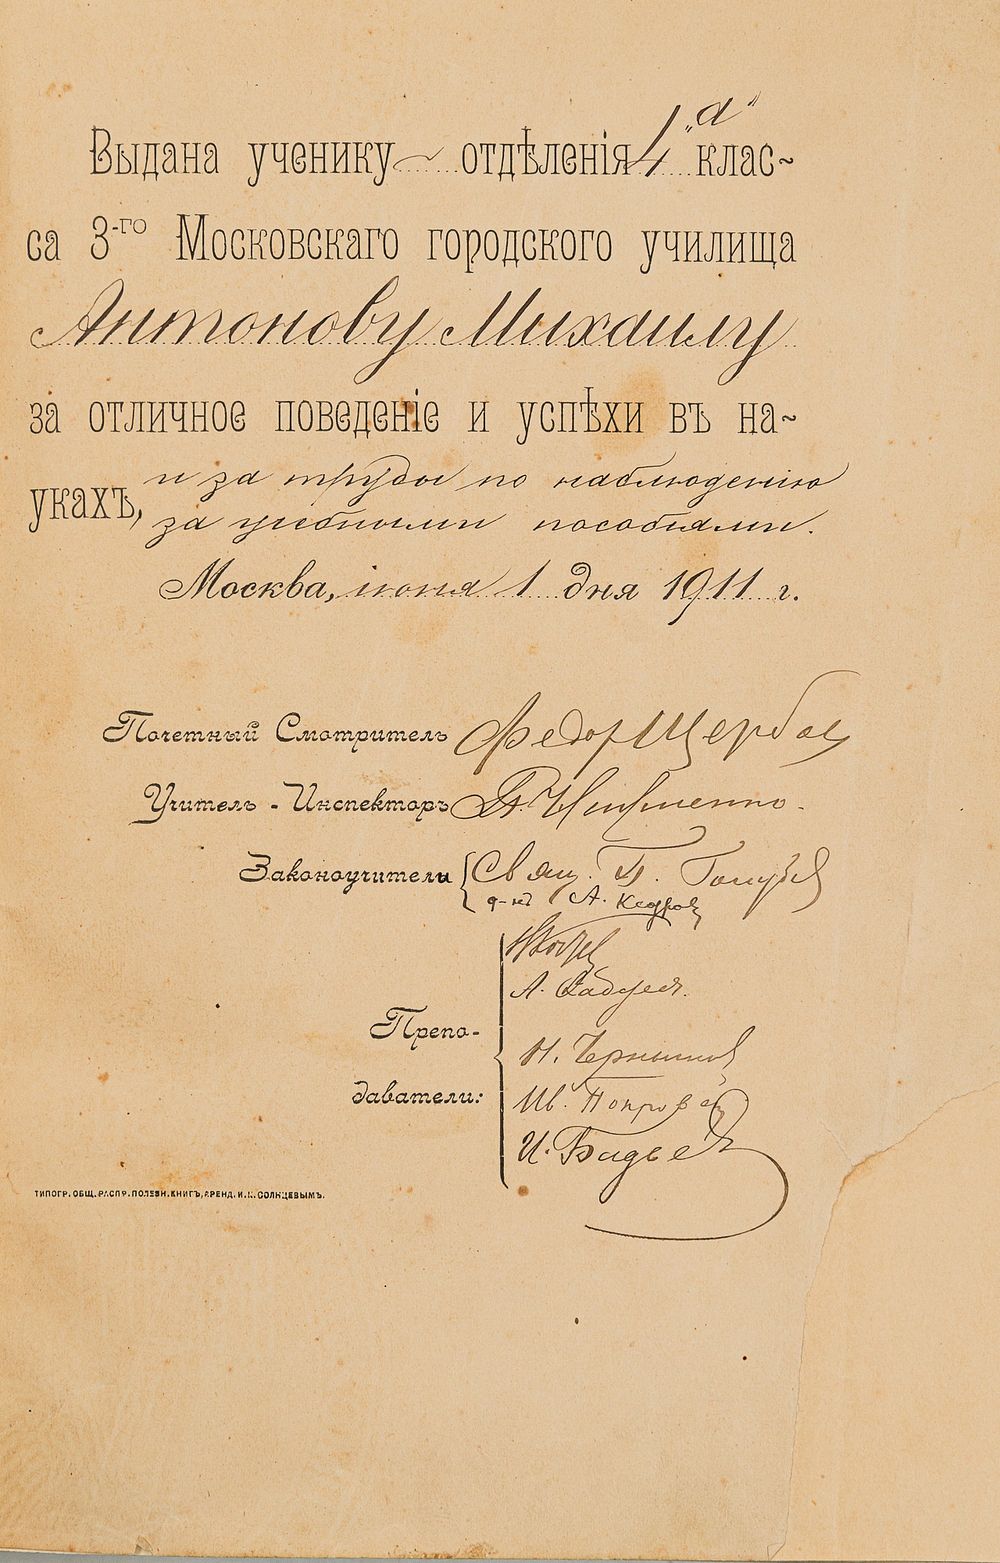 Выдана ученику отдѣленія 4 „а" клас-
са 3-го Московскаго городского училища
Антонову Михаилу
за отличное поведеніе и успѣхи въ на-
укахъ, и за труды по наблюденію
за учебными пособіями.
Москва, іюня 1 дня 1911 г.
Почетный Смотритель Федор Щербо
Учитель-Инспекторъ
Законоучители Свящ. П.
д-нъ А. Кедров
А.
Препо-
Н. Чернышов
даватели: Ив. Покров
И.
ТИПОГР. ОБЩ. РАСПР. ПОЛЕЗН. КНИГЪ, АРЕНД. И. К. СОЛНЦЕВЫМЪ.